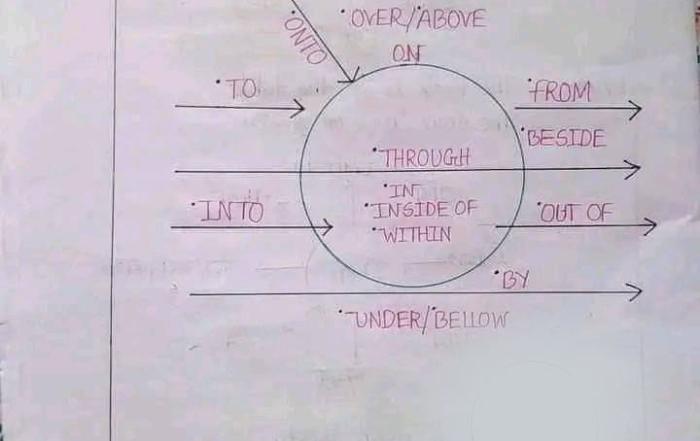 •OVER/•ABOVE
ONTO
ON
•TO
•FROM
•BESIDE
•THROUGH
•IN
•INTO
•INSIDE OF
•OUT OF
•WITHIN
•BY
•UNDER/•BELLOW